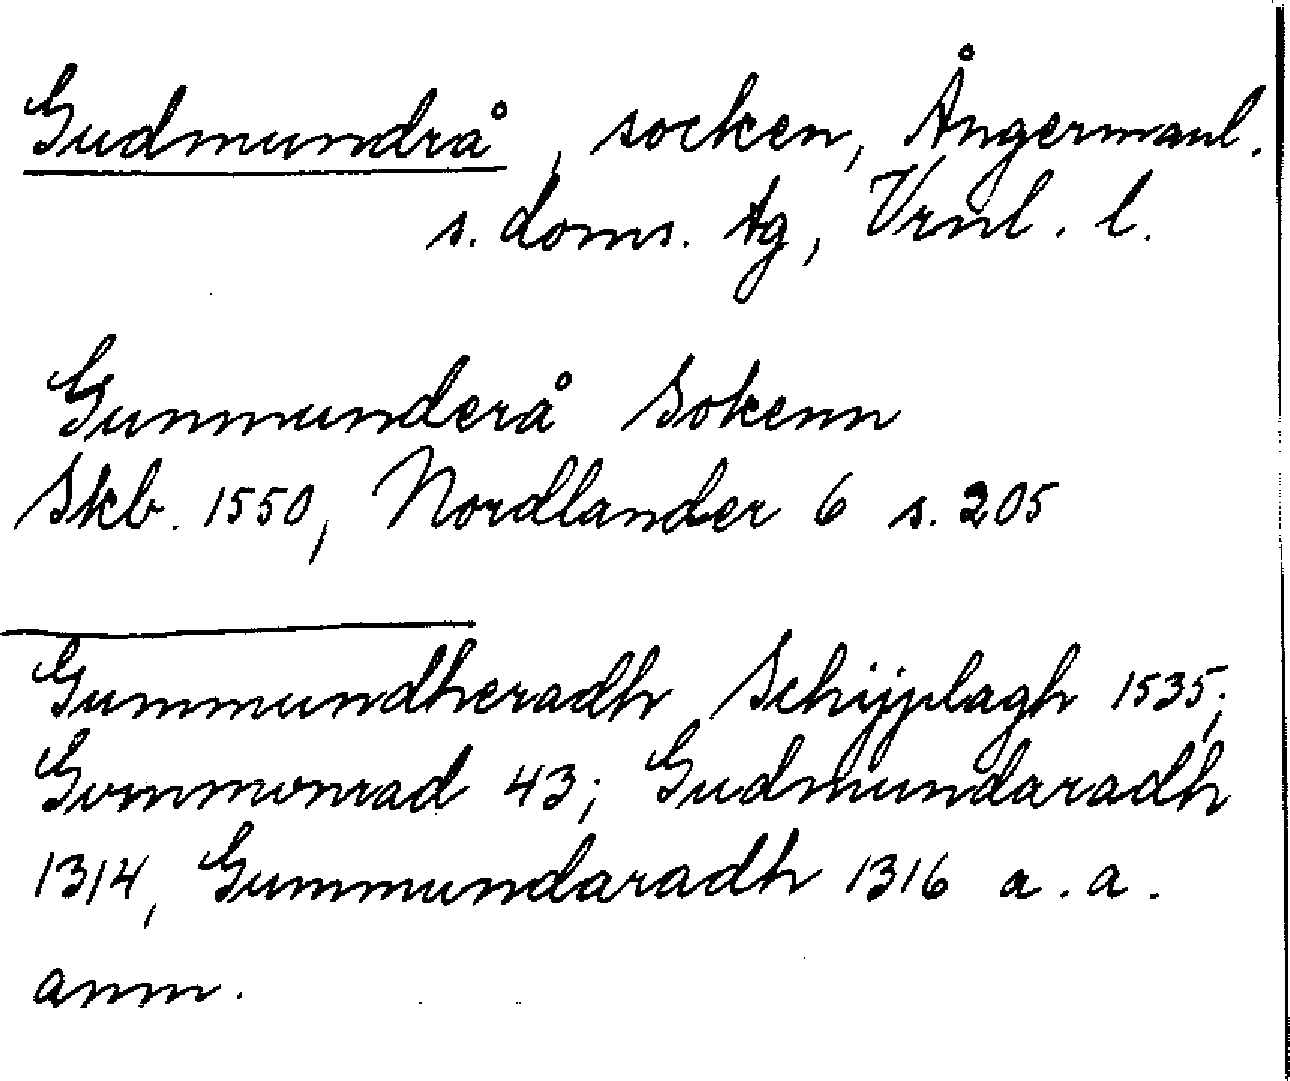 Gudmundrå, socken, Ångermanl.
s. doms. tg, Vrnl. l.
Gunmunderå Sokenn
Skb. 1550, Nordlander 6 s. 205
Gummundheradh Schijplagh 1535;
Gvmmvnrad 43; Gudmundaradh
1314, Gummundaradh 1316 a. a.
anm.